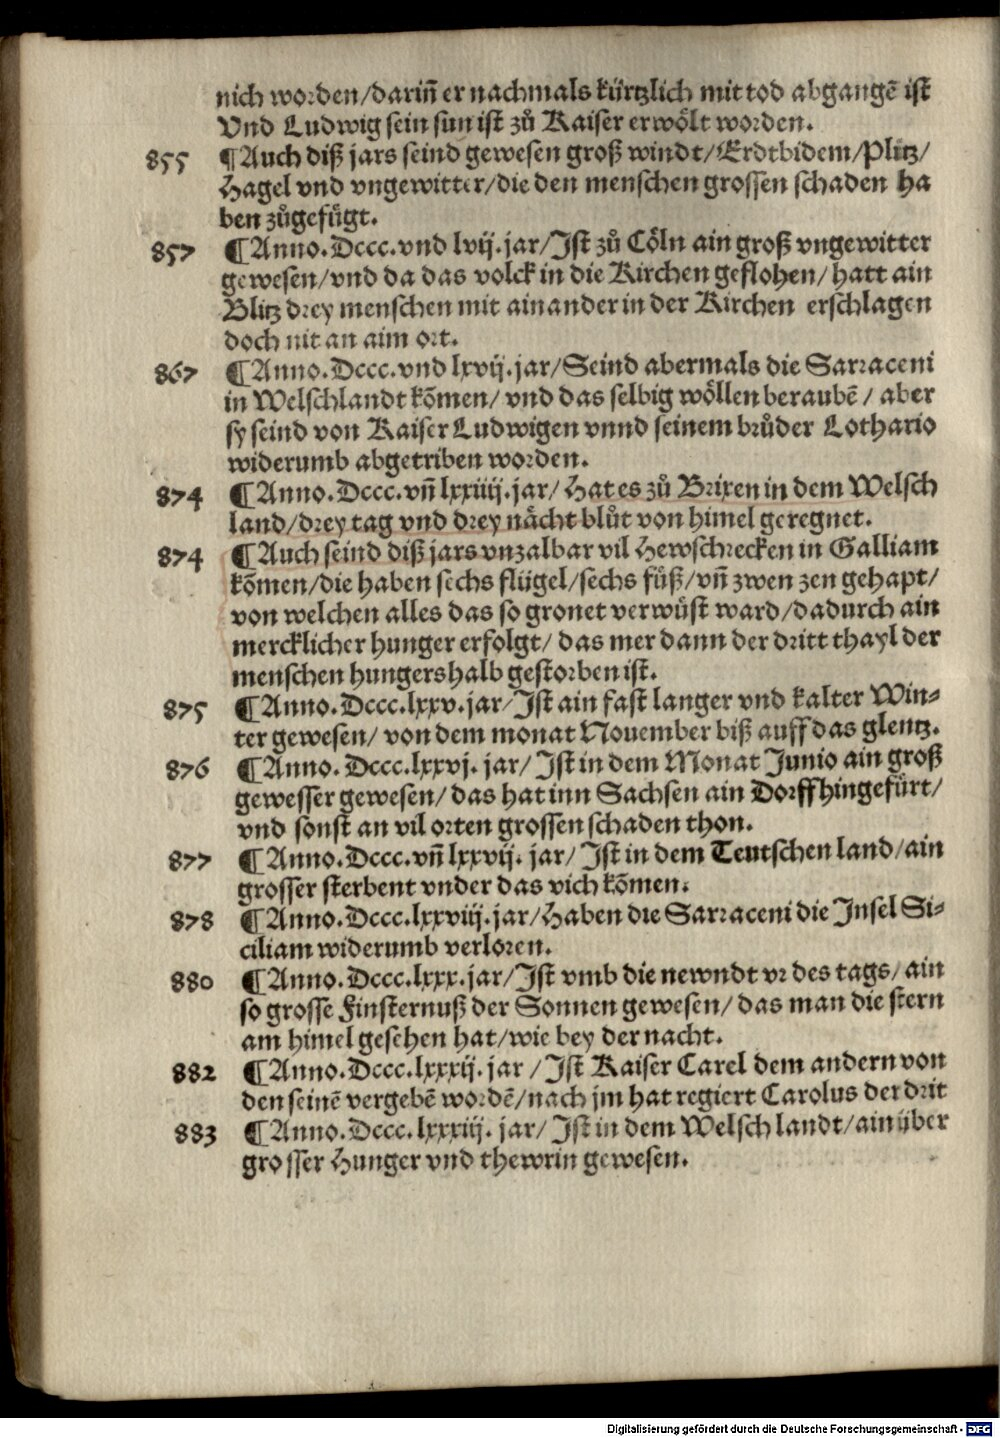 nich worden/dariñ er nachmals kürtzlich mit tod abgangẽ ist
Vnd Ludwig sein sun ist zů Kaiser erwölt worden.
855 ¶Auch diß jars seind gewesen groß windt/Erdtbidem/Plitz/
Hagel vnd vngewitter/die den menschen grossen schaden ha
ben zůgefügt.
857 ¶Anno.Dccc.vnd lvij.jar/Ist zů Cöln ain groß vngewitter
gewesen/vnd da das volck in die Kirchen geflohen/hatt ain
Blitz drey menschen mit ainander in der Kirchen erschlagen
doch nit an aim ort.
867 ¶Anno.Dccc.vnd lxvij.jar/Seind abermals die Sarraceni
in Welschlandt kõmen/ vnd das selbig wöllen beraubẽ / aber
sy seind von Kaiser Ludwigen vnnd seinem brůder Lothario
widerumb abgetriben worden.
874 ¶Anno.Dccc.vñ lxxiiij.jar/ Hat es zů Brixen in dem Welsch
land/drey tag vnd drey nächt blůt von himel geregnet.
874 ¶Auch seind diß jars vnzalbar vil Hewschrecken in Galliam
kõmen/die haben sechs flügel/sechs füß/vñ zwen zen gehapt/
von welchen alles das so gronet verwüst ward/dadurch ain
mercklicher hunger erfolgt/ das mer dann der dritt thayl der
menschen hungershalb gestorben ist.
875 ¶Anno.Dccc.lxxv.jar/Ist ain fast langer vnd kalter Win⸗
ter gewesen/ von dem monat Nouember biß auff das glentz.
876 ¶Anno. Dccc.lxxvj. jar/ Ist in dem Monat Junio ain groß
gewesser gewesen/ das hat inn Sachsen ain Dorff hingefürt/
vnd sonst an vil orten grossen schaden thon.
877 ¶Anno.Dccc.vñ lxxvij. jar/ Ist in dem Teutschen land/ain
grosser sterbent vnder das vich kõmen.
878 ¶Anno.Dccc.lxxviij.jar/Haben die Sarraceni die Insel Si⸗
ciliam widerumb verloren.
880 ¶Anno.Dccc.lxxx.jar/Ist vmb die newndt vr des tags/ ain
so grosse Finsternuß der Sonnen gewesen/ das man die stern
am himel gesehen hat/wie bey der nacht.
882 ¶Anno.Dccc.lxxxij. jar /Ist Kaiser Carel dem andern von
den seinẽ vergebẽ wordẽ/nach jm hat regiert Carolus der drit
883 ¶Anno.Dccc.lxxxiij. jar/ Ist in dem Welsch landt/ain über
grosser Hunger vnd thewrin gewesen.
Digitalisierung gefördert durch die Deutsche Forschungsgemeinschaft - DFG